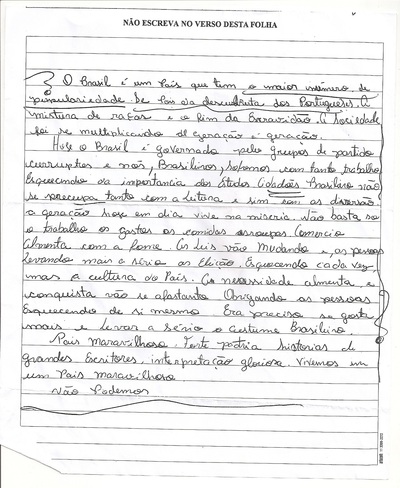 NÃO ESCREVA NO VERSO DESTA FOLHA
O Brasil é um País que tem o maior número de
popularidade. De Pois da descuberta dos Portugueses. A
mistura de raças e o fim da Escravidão. A Sociedade
foi se multiplicando de geração e geração.
Hoje o Brasil é governado pelo grupos de partido
curruptos e nós, Brasileiros, sofremos com tanto trabalho
Esquecendo da importancia dos Estudos Cidadões Brasileiro não
se preocupa tanto com a leitura e sim com as diversão
a geração hoje em dia vive na miseria. Não basta so
o trabalho os gastos as comidas as roupas Comercio
Almenta com a fome. As Leis vão Mudando e, as pessoas
Levando mais a sério as Eleição. Esquecendo cada vez
mas a cultura do País. As necessidade almenta e
conquista vão se afastanto Obrigando as pessoas
Esquecendo de si mesmo Era preciso se gosta
mais e levar a sério o custume Brasileiro.
País Maravilhoso. Forte patria historias de
grandes Escritores, interpretação gloriosa. Vivemos em
um País maravilhoso
Não Podemos